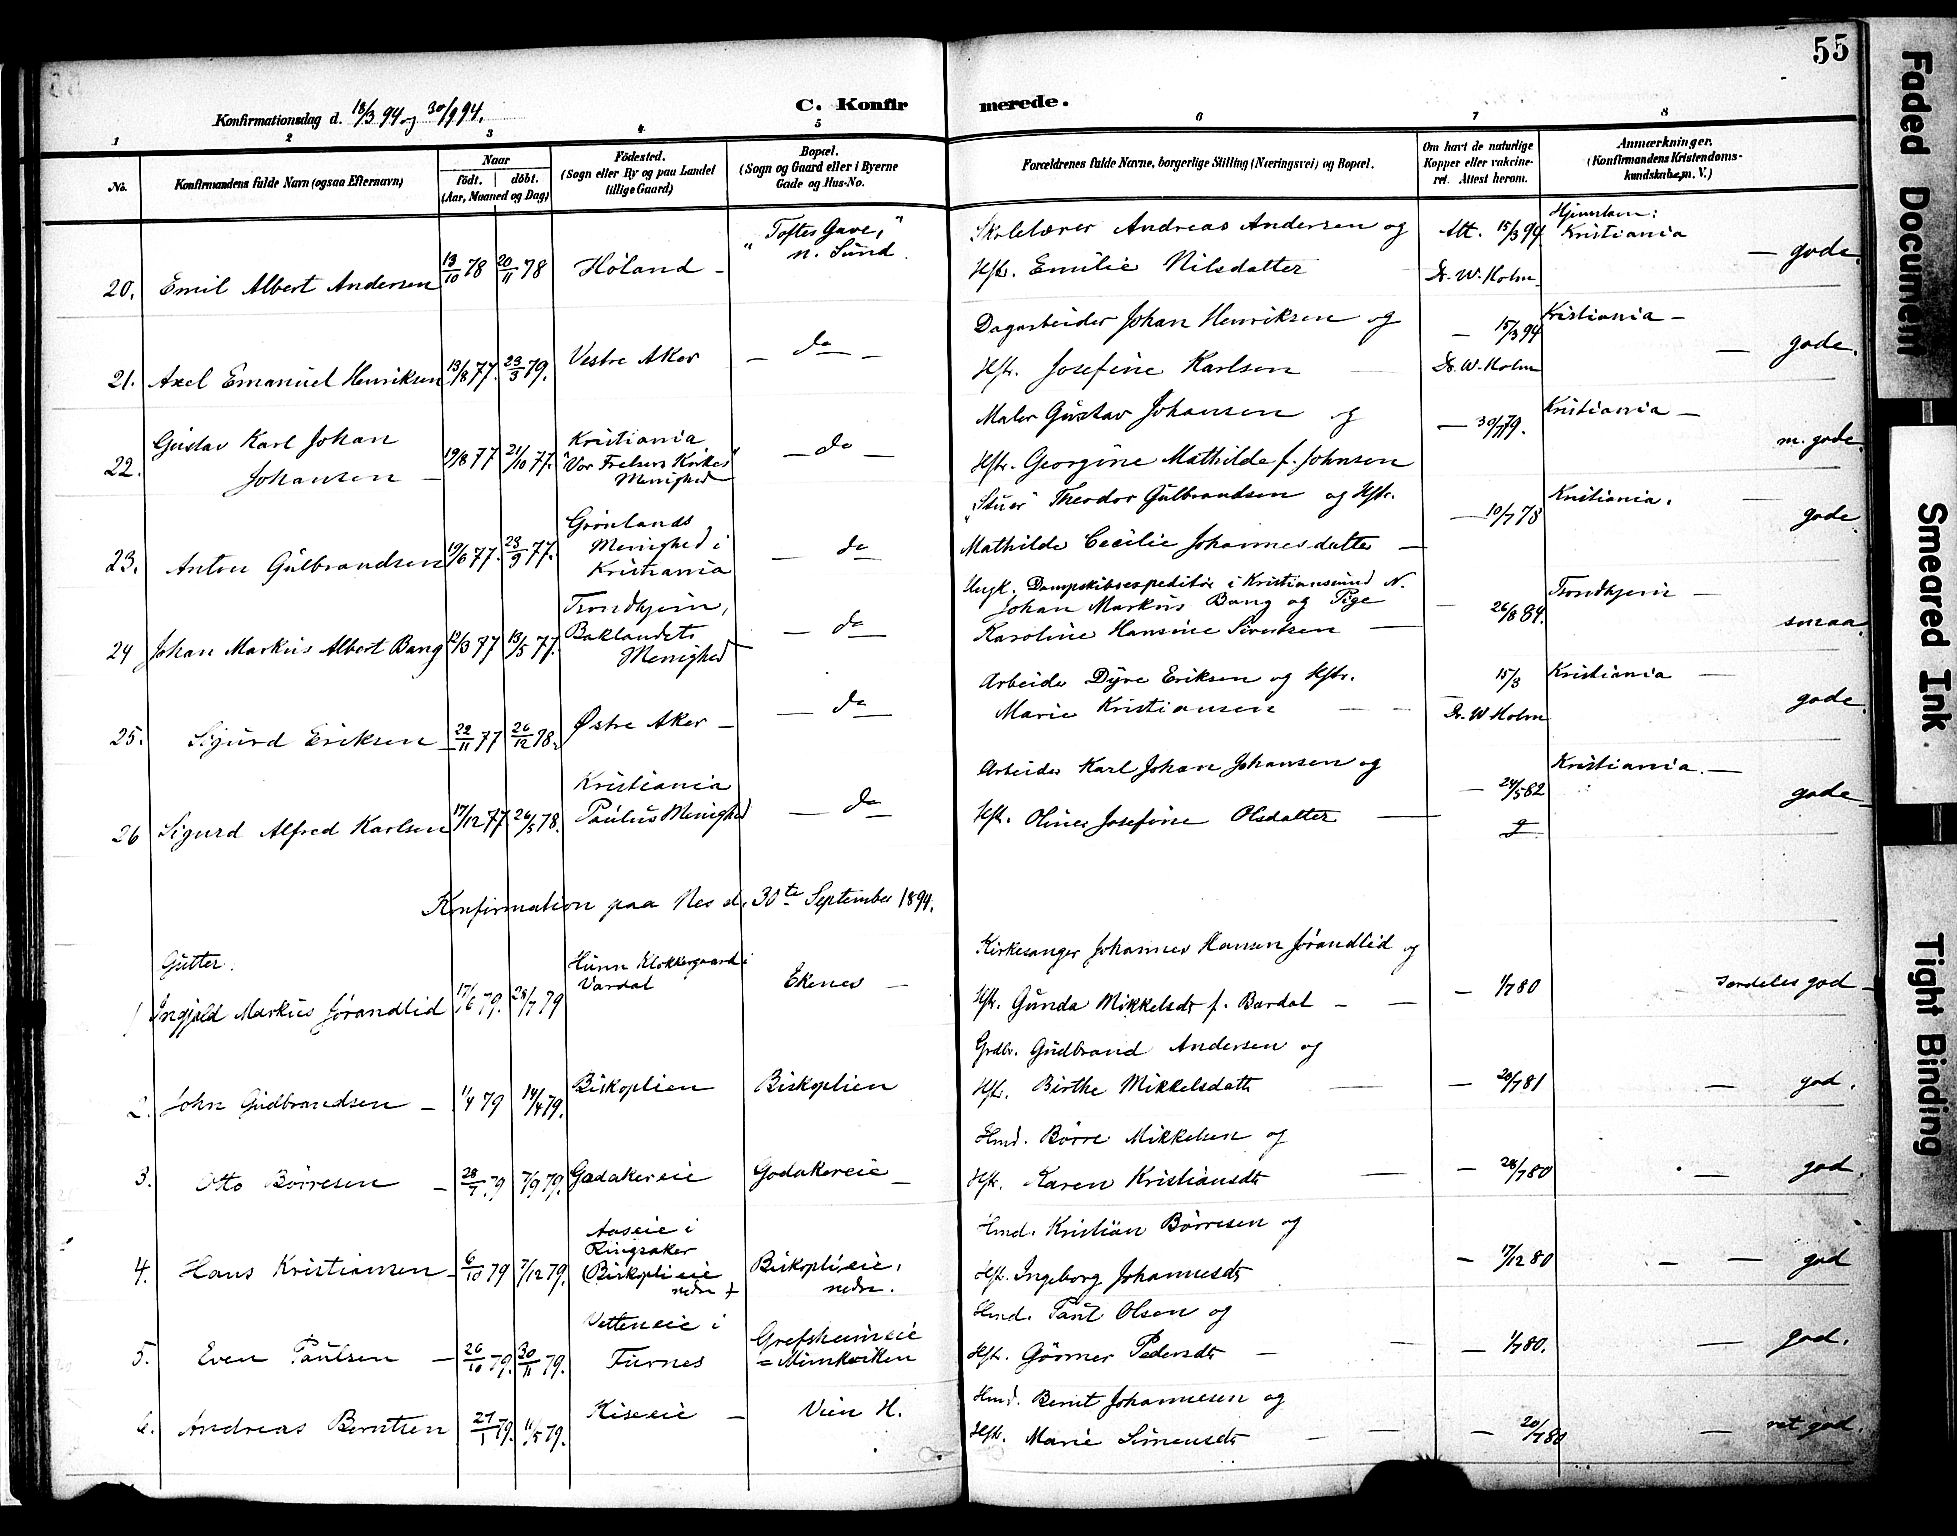 55
Konfirmationsdag d. 18/3 94 og 30/9 94.
C. Konfirmerede.
1 2 3 4 5 6 7 8
No.
Konfirmandens fulde Navn (ogsaa Efternavn)
Naar
födt. döbt.
(Aar, Maaned og Dag)
Födested.
(Sogn eller By og paa Landet
tillige Gaard)
Bopæl.
(Sogn og Gaard eller i Byerne
Gade og Hus-No.
Forældrenes fulde Navne, borgerlige Stilling (Næringsvei) og Bopæl.
Om havt de naturlige
Kopper eller vakcine-
ret. Attest herom.
Anmærkninger.
(Konfirmandens Kristendoms-
kundskab, m. V.)
20. Emil Albert Andersen 13/10 78 20/11 78 Høland -
"Toftes Gave,"
n. Sund.
Skolelærer Andreas Andersen og
Hstr. Emilie Nilsdatter
Att. 15/3 94
Dr. W. Holm
Hjemstavn:
Kristiania
— gode.
21. Axel Emanuel Henriksen 13/8 77. 23/3 79. Vestre Aker — do —
Dagarbeider Johan Henriksen og
Hstr. Josefine Karlsen
— 15/3 94
Dr. W. Holm
Kristiania —
— gode.
22. Gustav Karl Johan
Johansen —
19/8 77 21/10 77.
Kristiania
"Vor Frelsers Kirkes"
Menighed
— do —
Maler Gustav Johansen og
Hstr. Georgine Mathilde f. Johnsen
— 30/7 79.
Kristiania —
m. gode
23. Anton Gulbrandsen 19/6 77. 23/9 77.
Grønlands
Menighed i
Kristiania
— do
"Stuer" Theodor Gulbrandsen og Hstr.
Mathilde Cecilie Johannesdatter —
— 10/7 78
Kristiania. —
gode
24 Johan Markus Albert Bang 12/3 77 13/5 77.
Trondhjem,
Baklandets
Menighed
— do
Ungk. Dampskibsexpeditør i Kristianssund N.
Johan Markus Bang og Pige
Karoline Hansine Sivertsen —
— 26/8 84.
Trondhjem —
smaa.
25. Sigurd Eriksen 22/11 77 26/12 78. Østre Aker — — do
Arbeider Dyre Eriksen og Hstr.
Marie Kristiansen — —
15/3
Dr. W Holm
Kristiania —
gode
26 Sigurd Alfred Karlsen 17/12 77 26/5 78.
Kristiania
Paulus Menighed
— do
Arbeider Karl Johan Johansen og
Hstr. Oline Josefine Olsdatter —
— 24/5 82
Kristiania. —
gode
Konfirmation paa Nes d. 30te September 1894.
Gutter.
1 Ingjald Markus Jørandlid 17/6 79. 28/7 79
Hunn Klokkergaard i
Vardal
Ekenes —
Kirkesanger Johannes Hansen Jørandlid og
Hstr. Gunda Mikkelsdr f. Bardal — —
— 1/7 80
særdeles god —
2. John Gudbrandsen — 1/4 79 14/4 79. Biskoplien Biskoplien
Grdbr. Gudbrand Andersen og
Hstr. Birthe Mikkelsdatter —
— 20/7 81 — god.
3. Otto Børresen — 28/7 79 7/9 79. Godakereie Godakereie —
Hmd. Børre Mikkelsen og
Hstr. Karen Kristiansdr —
— 28/7 80 god
4. Hans Kristiansen — 6/10 79 7/12 79.
Aaseie i
Ringsaker
(Biskoplieie
nedre +
Biskoplieie,
nedre.
Hmd. Kristian Børresen og
Hstr. Ingeborg Johannesdr
— 17/12 80 — — god
5. Even Paulsen — 26/10 79. 30/11 79.
Vetteneie i
Furnes
Grefsheimeie
= Minkviken
Hmd. Paul Olsen og
Hstr. Gørmer Pedersdr —
— 1/7 80. — god.
6. Andreas Berntsen 27/1 79. 11/5 79. Kiseeie — Vien H.
Hmd. Bernt Johannesen og
Hstr. Marie Simensdr — —
— 20/7 80 — ret god.
Faded Document
Smeared Ink
Tight Binding